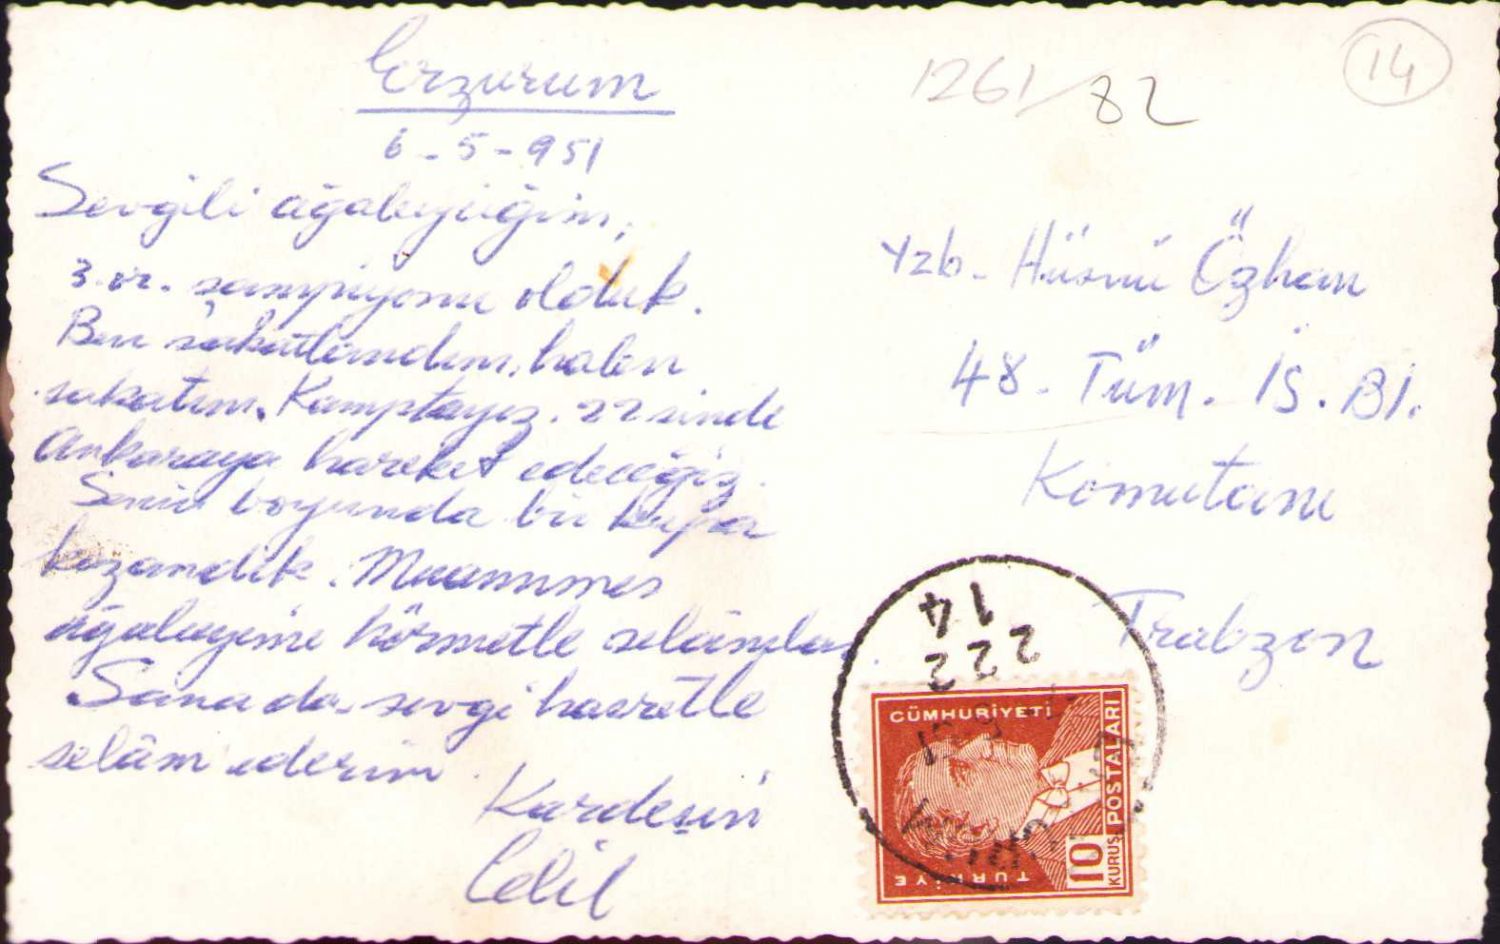 Erzurum
6-5-951
Sevgili ağabeyciğim,
3.or. şampiyonu olduk.
Ben sakatlandım, halen
sakatım. Kamptayız. 22 sinde
Ankaraya hareket edeceğiz.
Senin boyunda bir kupa
kazandık. Muammer
ağabeyime hörmetle selâmlar.
Sana da sevgi hasretle
selâm ederim.
Kardeşin
Celil
1261/82
14
Yzb. Hüsnü Özhan
48. Tüm. İS. Bl.
Komutanı
Trabzon
14
222
TÜRKİYE
CÜMHURİYETİ
POSTALARI
10
KURUŞ